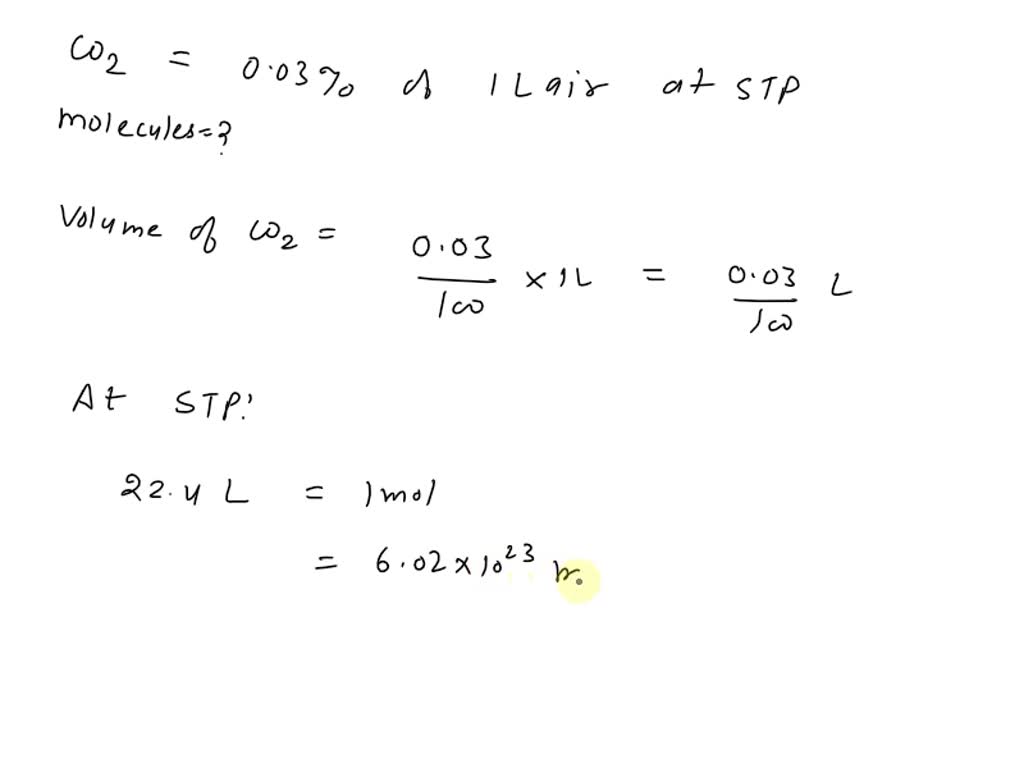 CO2 = 0.03% of 1L air at STP
molecules=?
Volume of CO2 = 0.03/100 × 1L = 0.03/100 L
At STP:
22.4 L = 1mol
= 6.02×10^23